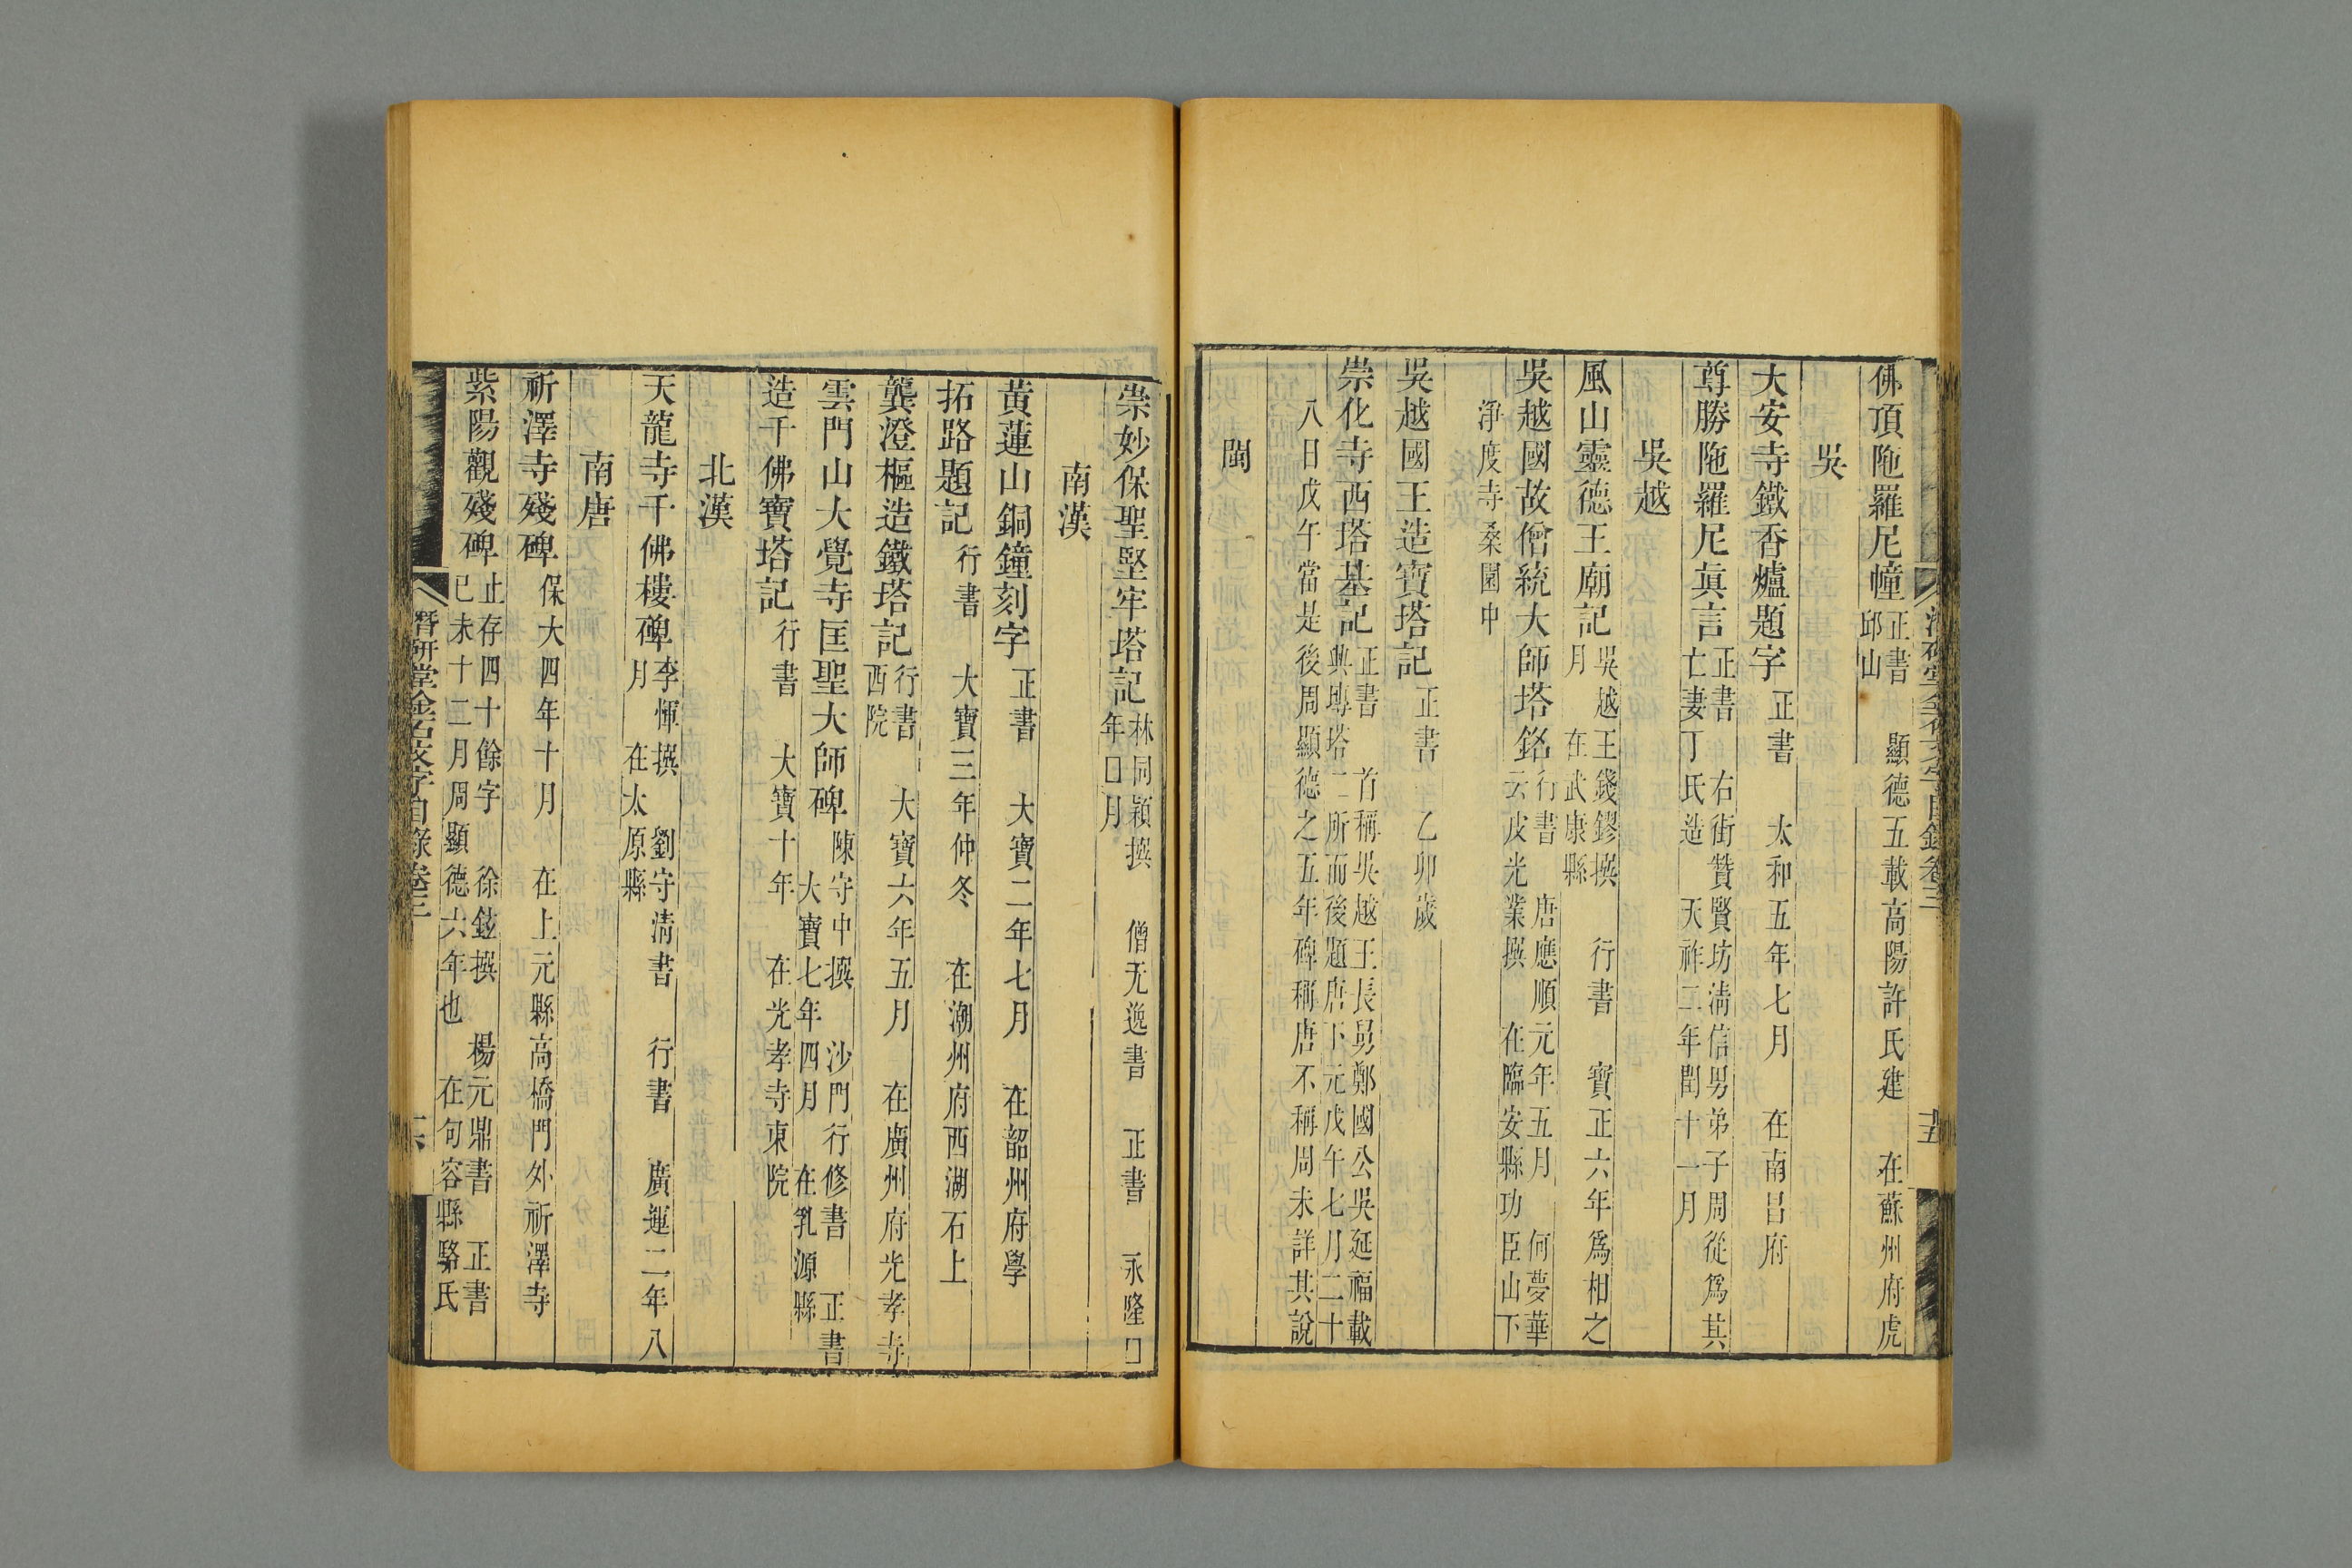 佛頂陁羅尼幢 正書 顯德五載高陽許氏建 在蘇州府虎邱山
吳
大安寺鐵香爐題字 正書 太和五年七月 在南昌府
尊勝陁羅尼真言 正書 右街贊賢坊清信男弟子周從爲其亡妻丁氏造 天祚二年閏十一月
吳越
風山靈德王廟記 吳越王錢鏐撰 行書 寶正六年爲相之月 在武康縣
吳越國故僧統大師塔銘 行書 唐應順元年五月 何夢華云皮光業撰 在臨安縣功臣山下
淨度寺桑園中
吳越國王造寶塔記 正書 乙卯歲
崇化寺西塔基記 正書 首稱吳越王長舅鄭國公吳延福載興塼塔二所而後題唐下元戊午七月二十
八日戊午當是後周顯德之五年碑稱唐不稱周未詳其說
閩
潛研堂金石文字目錄卷三
崇妙保聖堅牢塔記 林同穎撰 僧无逸書 正書 永隆囗年囗月
南漢
黃蓮山銅鐘刻字 正書 大寶二年七月 在韶州府學
拓路題記 行書 大寶三年仲冬 在潮州府西湖石上
龔澄樞造鐵塔記 行書 大寶六年五月 在廣州府光孝寺西院
雲門山大覺寺匡聖大師碑 陳守中撰 沙門行修書 正書 大寶七年四月 在乳源縣
造千佛寶塔記 行書 大寶十年 在光孝寺東院
北漢
天龍寺千佛樓碑 李惲撰 劉守清書 行書 廣運二年八月 在太原縣
南唐
祈澤寺殘碑 保大四年十月 在上元縣高橋門外祈澤寺
紫陽觀殘碑 止存四十餘字 徐鉉撰 楊元鼎書 正書 已未十二月周顯德六年也 在句容縣駱氏
潛研堂金石文字目錄卷三